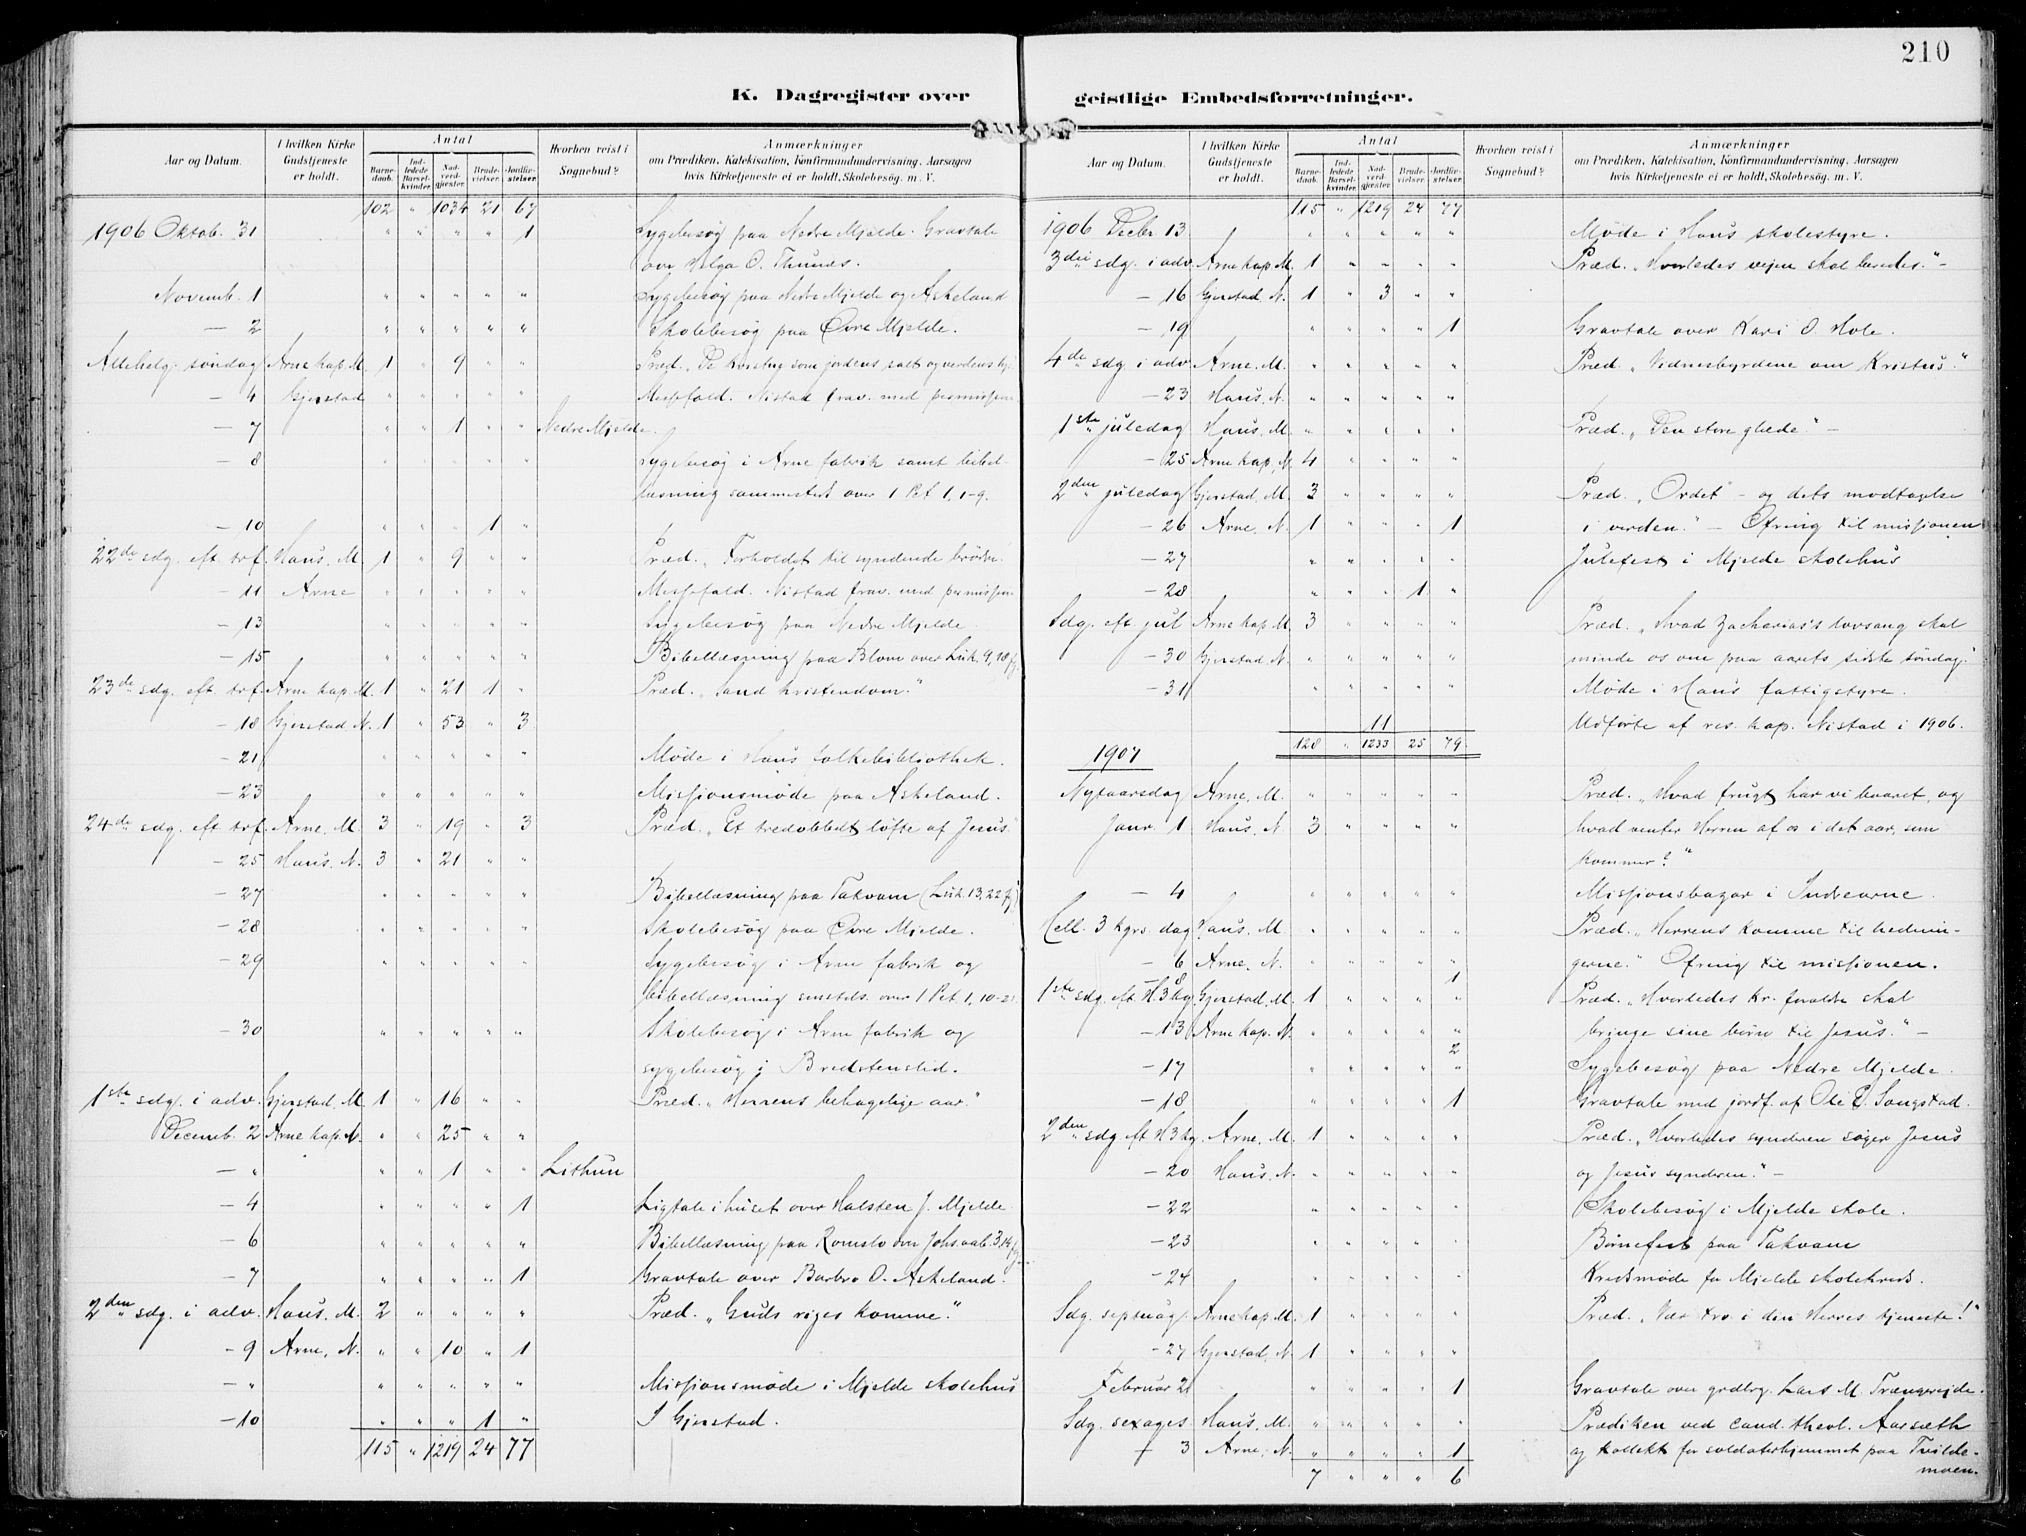 210
K. Dagregister over
Aar og Datum. I hvilken Kirke Gudstjeneste er holdt. Antal Barnedaab. Indledede Barselkvinder. Nadverdgjester. Brudevielser. Jordfæstelser. Hvorhen reist i Sognebud? Anmærkninger
om Prædiken, Katekisation, Konfirmandundervisning, Aarsagen
hvis Kirketjeneste ei er holdt, Skolebesøg, m. V.
102 " 1034 21 67
1906 Oktob. 31 " " " " 1 Sygebesøg paa Nedre Mjelde. Gravtale
over Helga O. Thunes.
Novemb. 1 " " " " " Sygebesøg paa Nedre Mjelde og Askeland
— 2 " " " " " Skolebesøg paa Øvre Mjelde.
Allehelg. søndag Arne kap. M. 1 " 9 " " Præd. „De kristne som jordens salt og verdens lys
— 4 Gjerstad " " " " " Messefald. Nistad frav. med permission
— 7 " " 1 " " Nedre Mjelde.
— 8 " " " " " Sygebesøg i Arne fabrik samt bibel-
læsning sammesteds over 1 Pet 1, 1-9.
— 10 " " " 1 "
22de sdg. eft. trf. Haus, M. 1 " 9 " " Præd. „Forholdet til syndende brødre.
— 11 Arne " " " " " Messefald. Nistad frav. med permission
— 13 " " " " " Sygebesøg paa Nedre Mjelde.
— 15 " " " " " Bibellæsning paa Blom over Luk. 9, 18 fg
23de sdg. eft. trf. Arne kap. M. 1 " 21 1 " Præd. „Sand kristendom."
— 18 Gjerstad N. 1 " 53 " 3
— 21 " " " " " Møde i Haus folkebibliothek.
— 23 " " " " " Missionsmøde paa Askeland.
24de sdg. eft. trf. Arne, M. 3 " 19 " 3 Præd. „Et tredobbelt løfte af Jesus."
— 25 Haus. N. 3 " 21 " "
— 27 " " " " " Bibellæsning paa Takvam (Luk. 13, 22 fg)
— 28 " " " " " Skolebesøg paa Øvre Mjelde.
— 29 " " " " " Sygebesøg i Arne fabrik og
bibellæsning smsteds. over 1 Pet. 1, 10-2
— 30 " " " " " Skolebesøg i Arne fabrik og
sygebesøg i Bredstenslid.
1ste sdg. i adv. Gjerstad, M. 1 " 16 " " Præd. „Herrens behagelige aar."
Decemb. 2 Arne kap. N. " " 25 " "
— " " " 1 " " Lithun
— 4 " " " " 1 Ligtale i huset over Halsten J. Mjelde.
— 6 " " " " " Bibellæsning paa Romslo over Johs. aab. 3, 14 fg.
— 7 " " " " 1 Gravtale over Barbro O. Askeland.
2den sdg. i adv. Haus. M. 2 " " " " Præd. „Guds riges komme."
— 9 Arne, N. " " 10 " 1
— " " " " " " Missionsmøde i Mjelde skolehus
— 10 " " " 1 " I Gjerstad.
115 " 1219 24 77
geistlige Embedsforretninger.
Aar og Datum. I hvilken Kirke Gudstjeneste er holdt. Antal Barnedaab. Indledede Barselkvinder. Nadverdgjester. Brudevielser. Jordfæstelser. Hvorhen reist i Sognebud? Anmærkninger
om Prædiken, Katekisation, Konfirmandundervisning, Aarsagen
hvis Kirketjeneste ei er holdt, Skolebesøg, m. V.
115 " 1219 24 77
1906 Decbr. 13 " " " " " Møde i Haus skolestyre.
3die sdg. i adv. Arne kap. M. 1 " " " " Præd. „Hvorledes vejen skal beredes."—
— 16 Gjerstad, N. 1 " 3 " "
— 19 " " " " 1 Gravtale over Kari O. Hole.
4de sdg i adv Arne, M. " " " " " Præd. „Vidnesbyrdene om Kristus."
— 23 Haus, N. " " " " "
1ste juledag Haus, M. " " " " " Præd. „Den store glæde."—
— 25 Arne kap, M 4 " " " "
2den juledag Gjerstad, M. 3 " " " " Præd. „Ordet" — og dets modtagelse
— 26 Arne, N. 1 " " " 1 i verden." — Ofring til missionen
— 27 " " " " " Julefest i Mjelde skolehus
— 28 " " " 1 "
Sdg. eft jul Arne kap. M. 3 " " " " Præd. „Hvad Zacharias's lovsang skal
— 30 Gjerstad N. " " " " " minde os om paa aarets sidste søndag."
— 31 " " " " " Møde i Haus fattigstyre.
11 Udførte af res. kap. Nistad i 1906.
128 " 1233 25 79
1907
Nytaarsdag Arne, M. " " " " " Præd. „Hvad frugt har vi baaret, og
Janr. 1 Haus, N. 3 " " " " hvad venter Herren af os i det aar, som
kommer?"
— 4 " " " " " Missionsbazar i Indrearne.
Hell. 3 kgrs. dag Haus. M " " " " " Præd. „Herrens komme til hednin-
— 6 Arne. N. " " " " " gerne." Ofring til missionen.
— 8 1
1ste sdg. eft. H3kg. Gjerstad, M. 1 " " " " Præd. „Hvorledes kr. forældre skal
— 13 Arne kap. N. " " " " " bringe sine børn til Jesus."—
2
— 17 " " " " " Sygebesøg paa Nedre Mjelde.
— 18 " " " " 1 Gravtale med jordf. af Ole E. Songstad.
2den sdg. eft H3kg. Arne, M. 1 " " " " Præd. „Hvorledes synderen søger Jesus
— 20 Haus, N. " " " " " og Jesus synderen."—
— 22 " " " " " Skolebesøg i Mjelde skole.
— 23 " " " " " Børnefest paa Takvam
— 24 " " " " " Kredsmøde for Mjelde skolekreds.
Sdg. septuag. Arne kap. M. 1 " " " " Præd. „Vær tro i den Herres tjeneste!"
— 27 Gjerstad, N. 1 " " " "
Februar 2 " " " " 1 Gravtale over grdbrg. Lars M. Trængereide.
Sdg. sexages. Haus, M. " " " " " Prædiken ved cand. theol. Aarsæth
— 3 Arne, N. " " " " 1 og kollekt for soldaterhjemmet paa Tvilde-
moen.
7 " " " 6